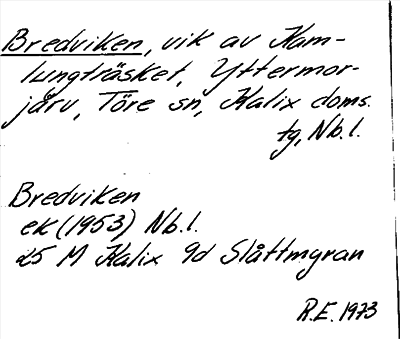 Bredviken, vik av Kam-
lungträsket, Yttermor-
järv, Töre sn, Kalix doms.
tg, Nb.l.
Bredviken
ek (1953) Nb.l.
25 M Kalix 9d Slåttmgran
R.E. 1973